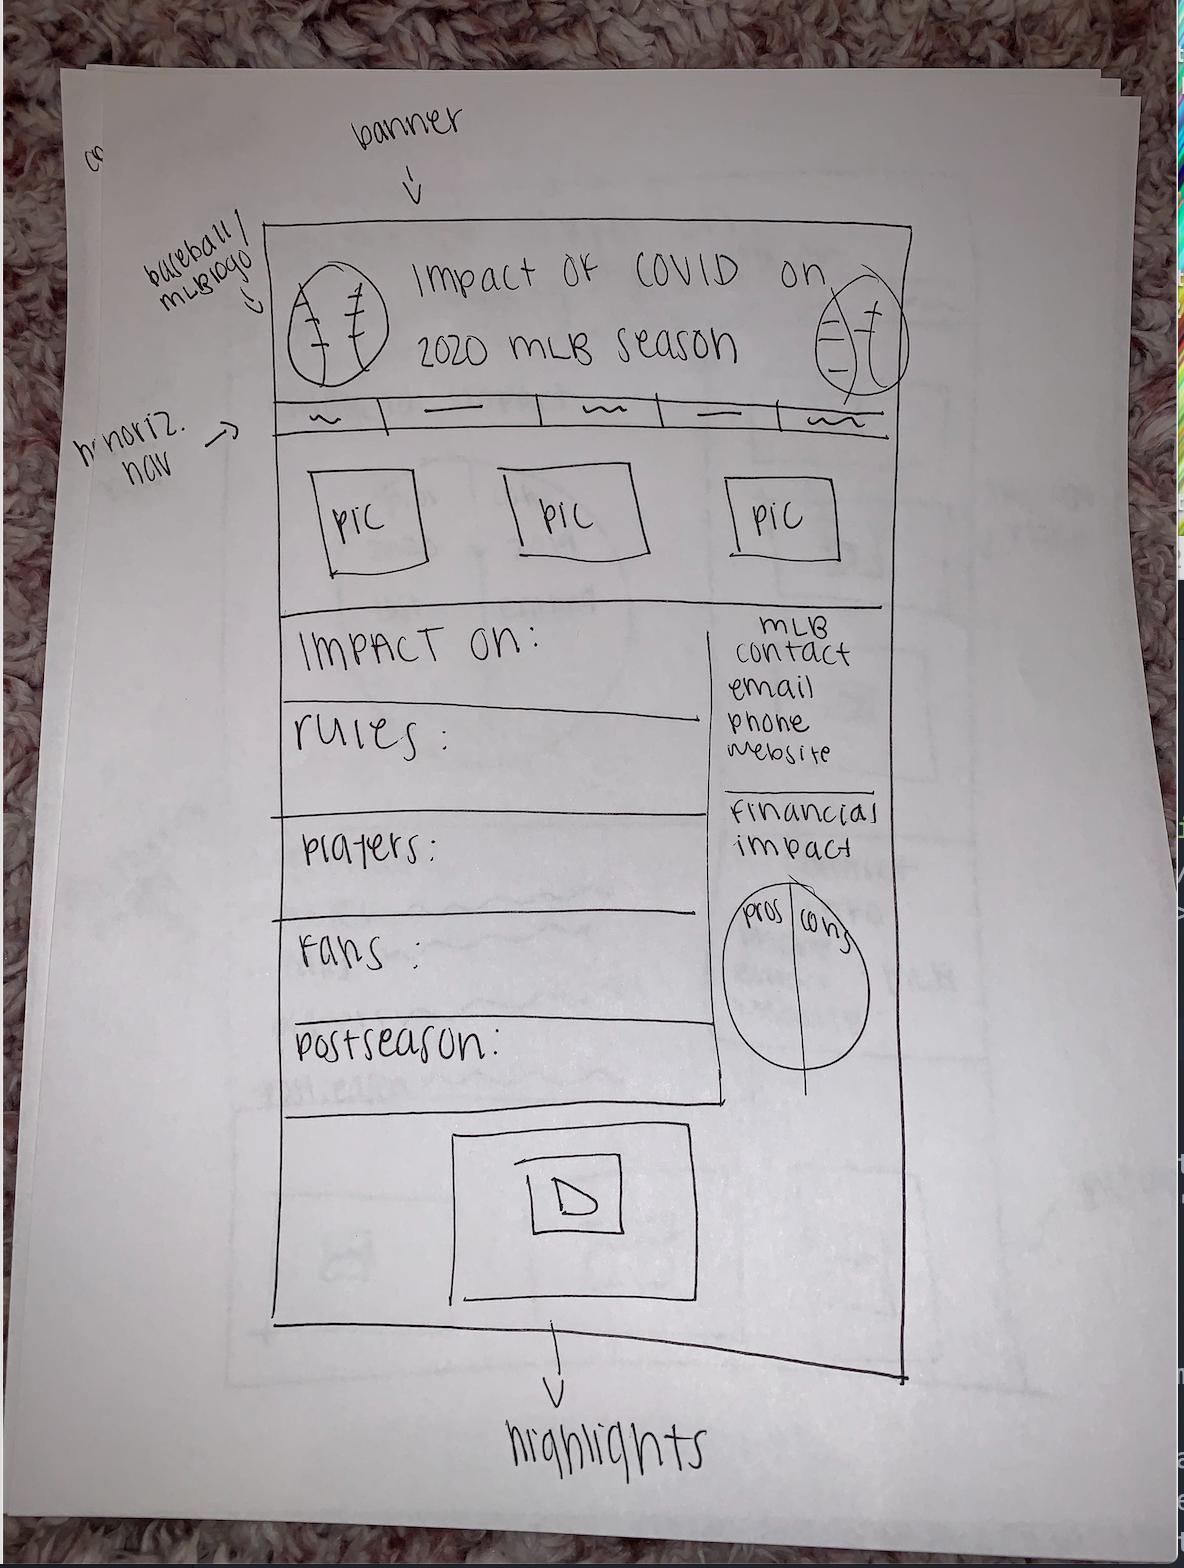 banner
baseball/
MLB logo
Impact of COVID on
2020 MLB season
horiz.
nav
pic
pic
pic
IMPACT on:
rules:
players:
fans:
postseason:
MLB
contact
email
phone
website
financial
impact
pros
cons
highlights